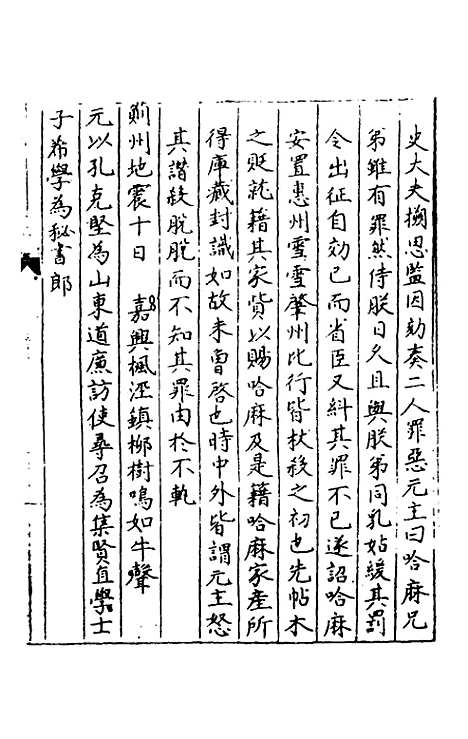 史大夫搠思監因劾奏二人罪惡元主曰哈麻兄
弟雖有罪然侍朕日久且與朕弟同乳姑緩其罰
令出征自効已而省臣又糾其罪不已遂詔哈麻
安置惠州雪雪肇州比行皆杖殺之初也先帖木
之貶就籍其家貲以賜哈麻及是籍哈麻家產所
得庫藏封識如故未曾啓也時中外皆謂元主怒
其譖殺脫脫而不知其罪由於不軌
薊州地震十日　嘉興楓涇鎮柳樹鳴如牛聲
元以孔克堅為山東道廉訪使尋召為集賢直學士
子希學為秘書郎